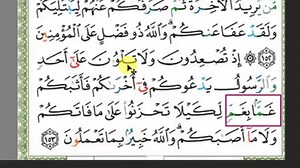 مَّن يُرِيدُ الْآخِرَةَ ثُمَّ صَرَفَكُمْ عَنْهُمْ لِيَبْتَلِيَكُمْ
وَلَقَدْ عَفَا عَنكُمْ وَاللَّهُ ذُو فَضْلٍ عَلَى الْمُؤْمِنِينَ
﴿١٥٢﴾ إِذْ تُصْعِدُونَ وَلَا تَلْوُونَ عَلَىٰ أَحَدٍ
وَالرَّسُولُ يَدْعُوكُمْ فِي أُخْرَاكُمْ فَأَثَابَكُمْ
غَمًّا بِغَمٍّ لِّكَيْلَا تَحْزَنُوا عَلَىٰ مَا فَاتَكُمْ
وَلَا مَا أَصَابَكُمْ وَاللَّهُ خَبِيرٌ بِمَا تَعْمَلُونَ ﴿١٥٣﴾